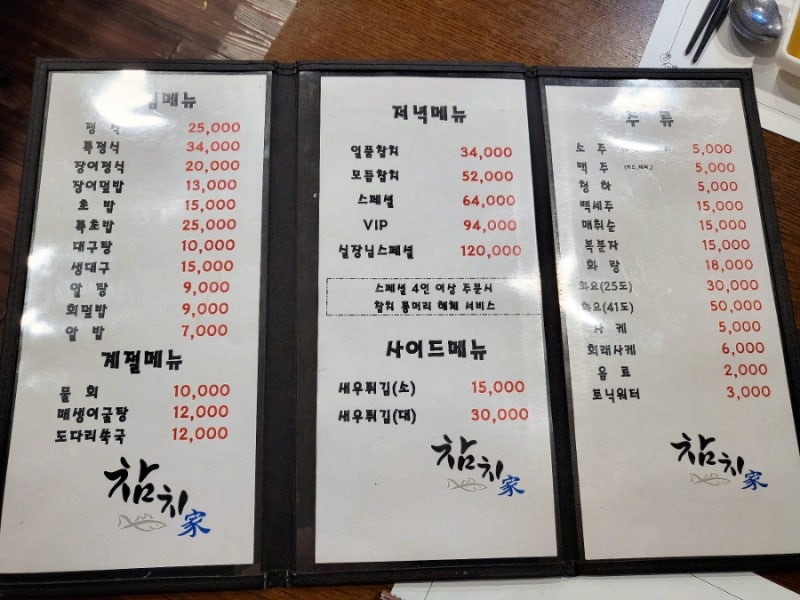 메뉴
정 식 25,000
특정식 34,000
장어정식 20,000
장어덮밥 13,000
초 밥 15,000
특초밥 25,000
대구탕 10,000
생대구 15,000
알 탕 9,000
회덮밥 9,000
알 밥 7,000
계절메뉴
물 회 10,000
매생이굴탕 12,000
도다리쑥국 12,000
참치家
저녁메뉴
일품참치 34,000
모듬참치 52,000
스페셜 64,000
VIP 94,000
실장님스페셜 120,000
스페셜 4인 이상 주문시
참치 통머리 해체 서비스
사이드메뉴
새우튀김(소) 15,000
새우튀김(대) 30,000
참치家
주 류
소 주 5,000
맥 주 5,000
청 하 5,000
백세주 15,000
매취순 15,000
복분자 15,000
화 랑 18,000
화요(25도) 30,000
화요(41도) 50,000
사 케 5,000
회래사케 6,000
음 료 2,000
토닉워터 3,000
참치家